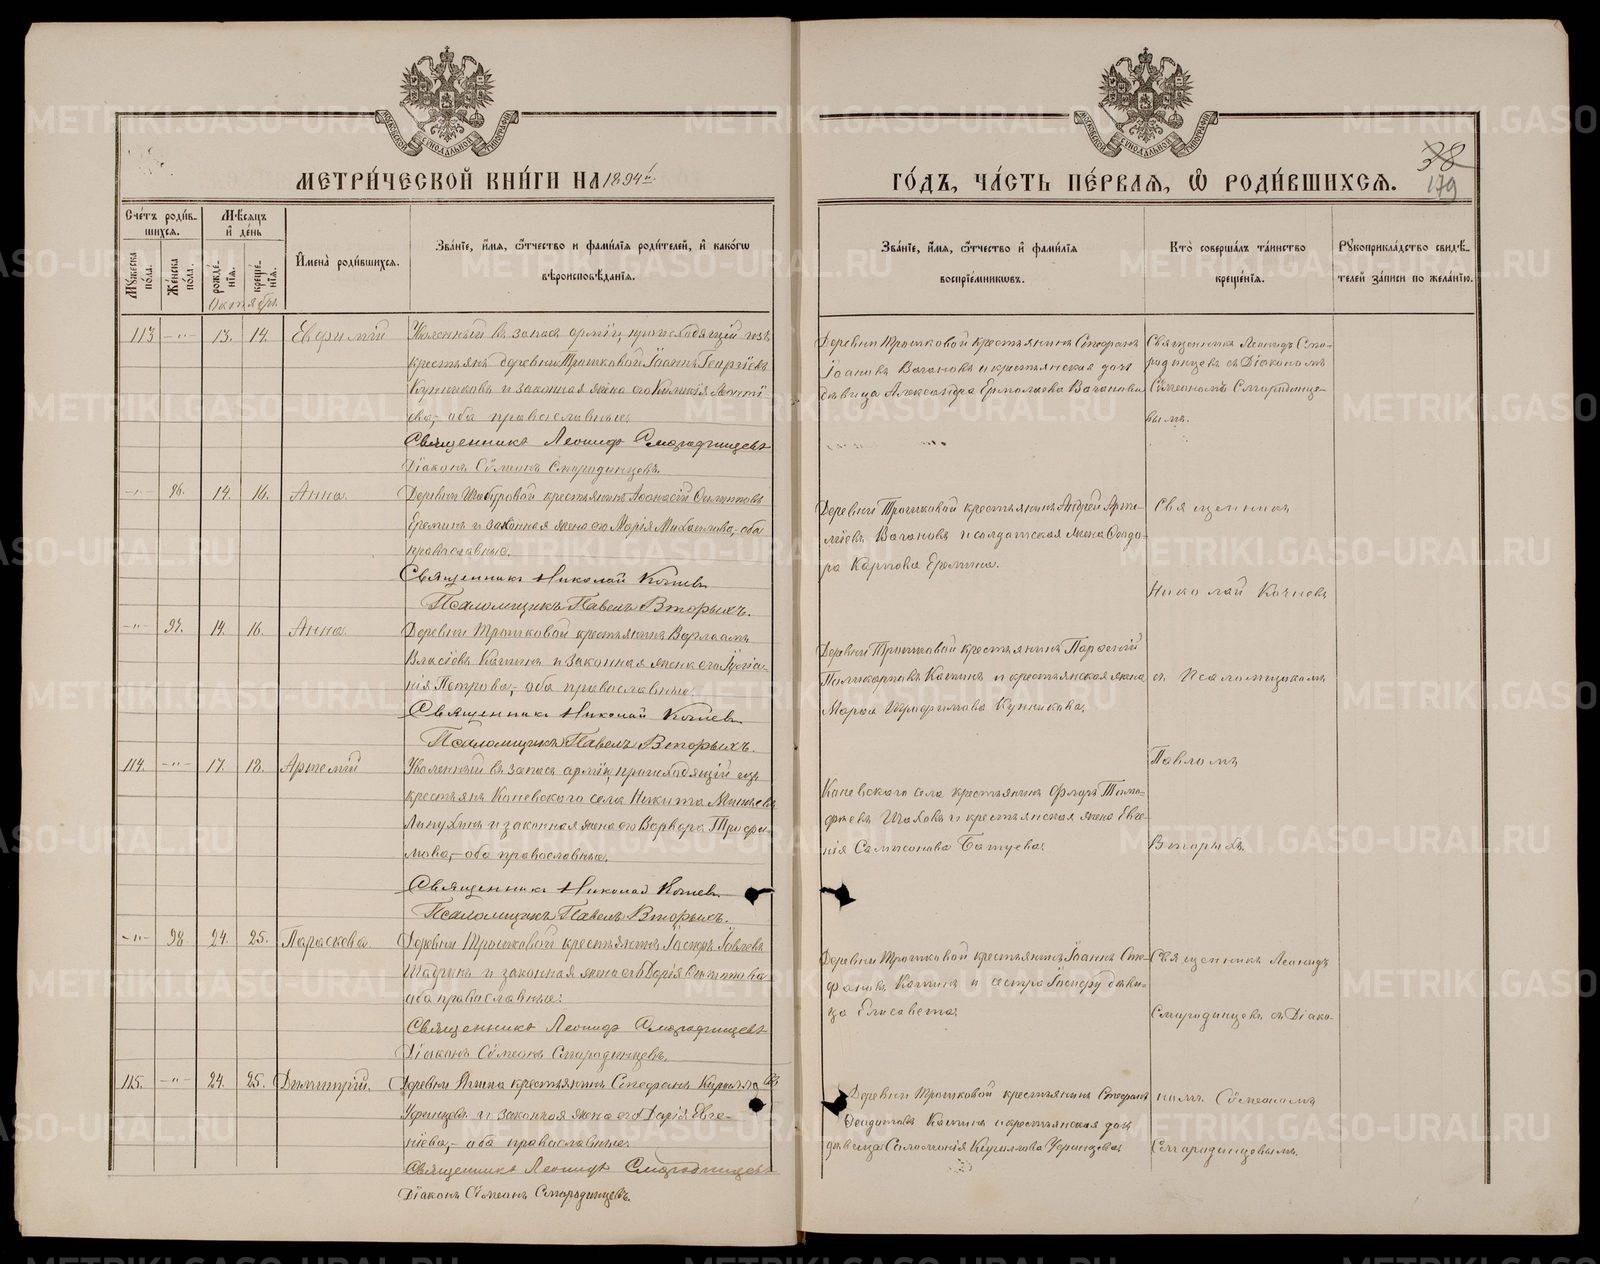 МЕТРИ́ЧЕСКОЙ КНИ́ГИ НА 1894й
Сче́тъ роди́в-
шихсѧ.
Мѣ́сѧцъ
и҆ де́нь
Мꙋ́жеска
по́ла.
Же́нска
по́ла.
рожде́-
нїѧ.
креще́-
нїѧ.
И҆мена̀ роди́вшихсѧ.
Зва́нїе, и҆́мѧ, ѻ҆́тчество и фами́лїѧ роди́телей, и҆ како́гѡ
вѣроисповѣ́данїѧ.
Октябрь
113 -"- 13. 14. Евфимій
Уволенный въ запасъ арміи, происходящій изъ
крестьянъ деревни Трошковой Іоаннъ Георгіевъ
Кунниковъ и законная жена его Леонті-
ева,- оба православные.
Священникъ Леонидъ Смородинцевъ
Діаконъ Сѷмеонъ Смородинцевъ.
-"- 96. 14. 16. Анна
Деревни крестьянинъ Аѳанасій
Ереминъ и законная жена его Марія Михайлова,- оба
православные.
Священникъ Николай Кочневъ
Псаломщикъ Павелъ Вторыхъ.
-"- 97. 14. 16. Анна
Деревни Трошковой крестьянинъ Варлаамъ
Власіевъ Качинъ и законная жена его
Петрова,- оба православные.
Священникъ Николай Кочневъ
Псаломщикъ Павелъ Вторыхъ.
114. -"- 17. 18. Артемій
Уволенный въ запасъ арміи, происходящій изъ
крестьянъ Коневскаго села Никита
Лапухинъ и законная жена его Варвара Трофи-
мова,- оба православные.
Священникъ Николай Кочневъ
Псаломщикъ Павелъ Вторыхъ.
-"- 98. 24. 25. Параскева
Деревни Трошковой крестьянинъ
Шадринъ и законная жена его Дарія
оба православные.
Священникъ Леонидъ Смородинцевъ
Діаконъ Сѷмеонъ Смородинцевъ.
115. -"- 24. 25. Димитрій.
Деревни крестьянинъ Стефанъ Кирилловъ
Уфинцевъ и законная жена его Дарія Евге-
ніева,- оба православные.
Священникъ Леонидъ Смородинцевъ
Діаконъ Сѷмеонъ Смородинцевъ.
38
179
ГО́ДЪ, ЧА́СТЬ ПЕ́РВАѦ, Ѽ РОДИ́ВШИХСѦ.
Зва́нїе, и҆́мѧ, ѻ҆́тчество и҆ фами́лїѧ
воспрїе́мниковъ.
Кто̀ соверша́лъ та́инство
креще́нїѧ.
Рꙋкоприкла́дство свидѣ́-
телей за́писи по жела́нїю.
Деревни Трошковой крестьянинъ Стефанъ
Іоановъ Вагановъ и крестьянская дочь
дѣвица Александра Ермолаева Ваганова
Священникъ Леонидъ Смо-
родинцевъ съ Діакономъ
Сѷмеономъ Смородинце-
вымъ.
Деревни Трошковой крестьянинъ Андрей Арте-
міевъ Вагановъ и солдатская жена Ѳеодо-
ра Карпова Еремина.
Священникъ
Николай Кочневъ
Деревни Трошковой крестьянинъ
Поликарповъ Качинъ и крестьянская жена
Марѳа Трофимова Кунникова.
съ Псаломщикомъ
Павломъ
Коневскаго села крестьянинъ Флоръ Тимо-
феевъ Шаховъ и крестьянская жена Евге-
нія Сампсонова Батуева.
Вторыхъ.
Деревни Трошковой крестьянинъ Іоаннъ Сте-
фановъ Качинъ и сестра дѣви-
ца Елисавета.
Священникъ Леонидъ
Смородинцевъ съ Діако-
Деревни Трошковой крестьянинъ Стефанъ
Ѳеодотовъ Качинъ и крестьянская дочь
дѣвица Соломонія Кириллова Уфинцева
номъ Сѷмеономъ
Смородинцевымъ.
METRIKI.GASO-URAL.RU